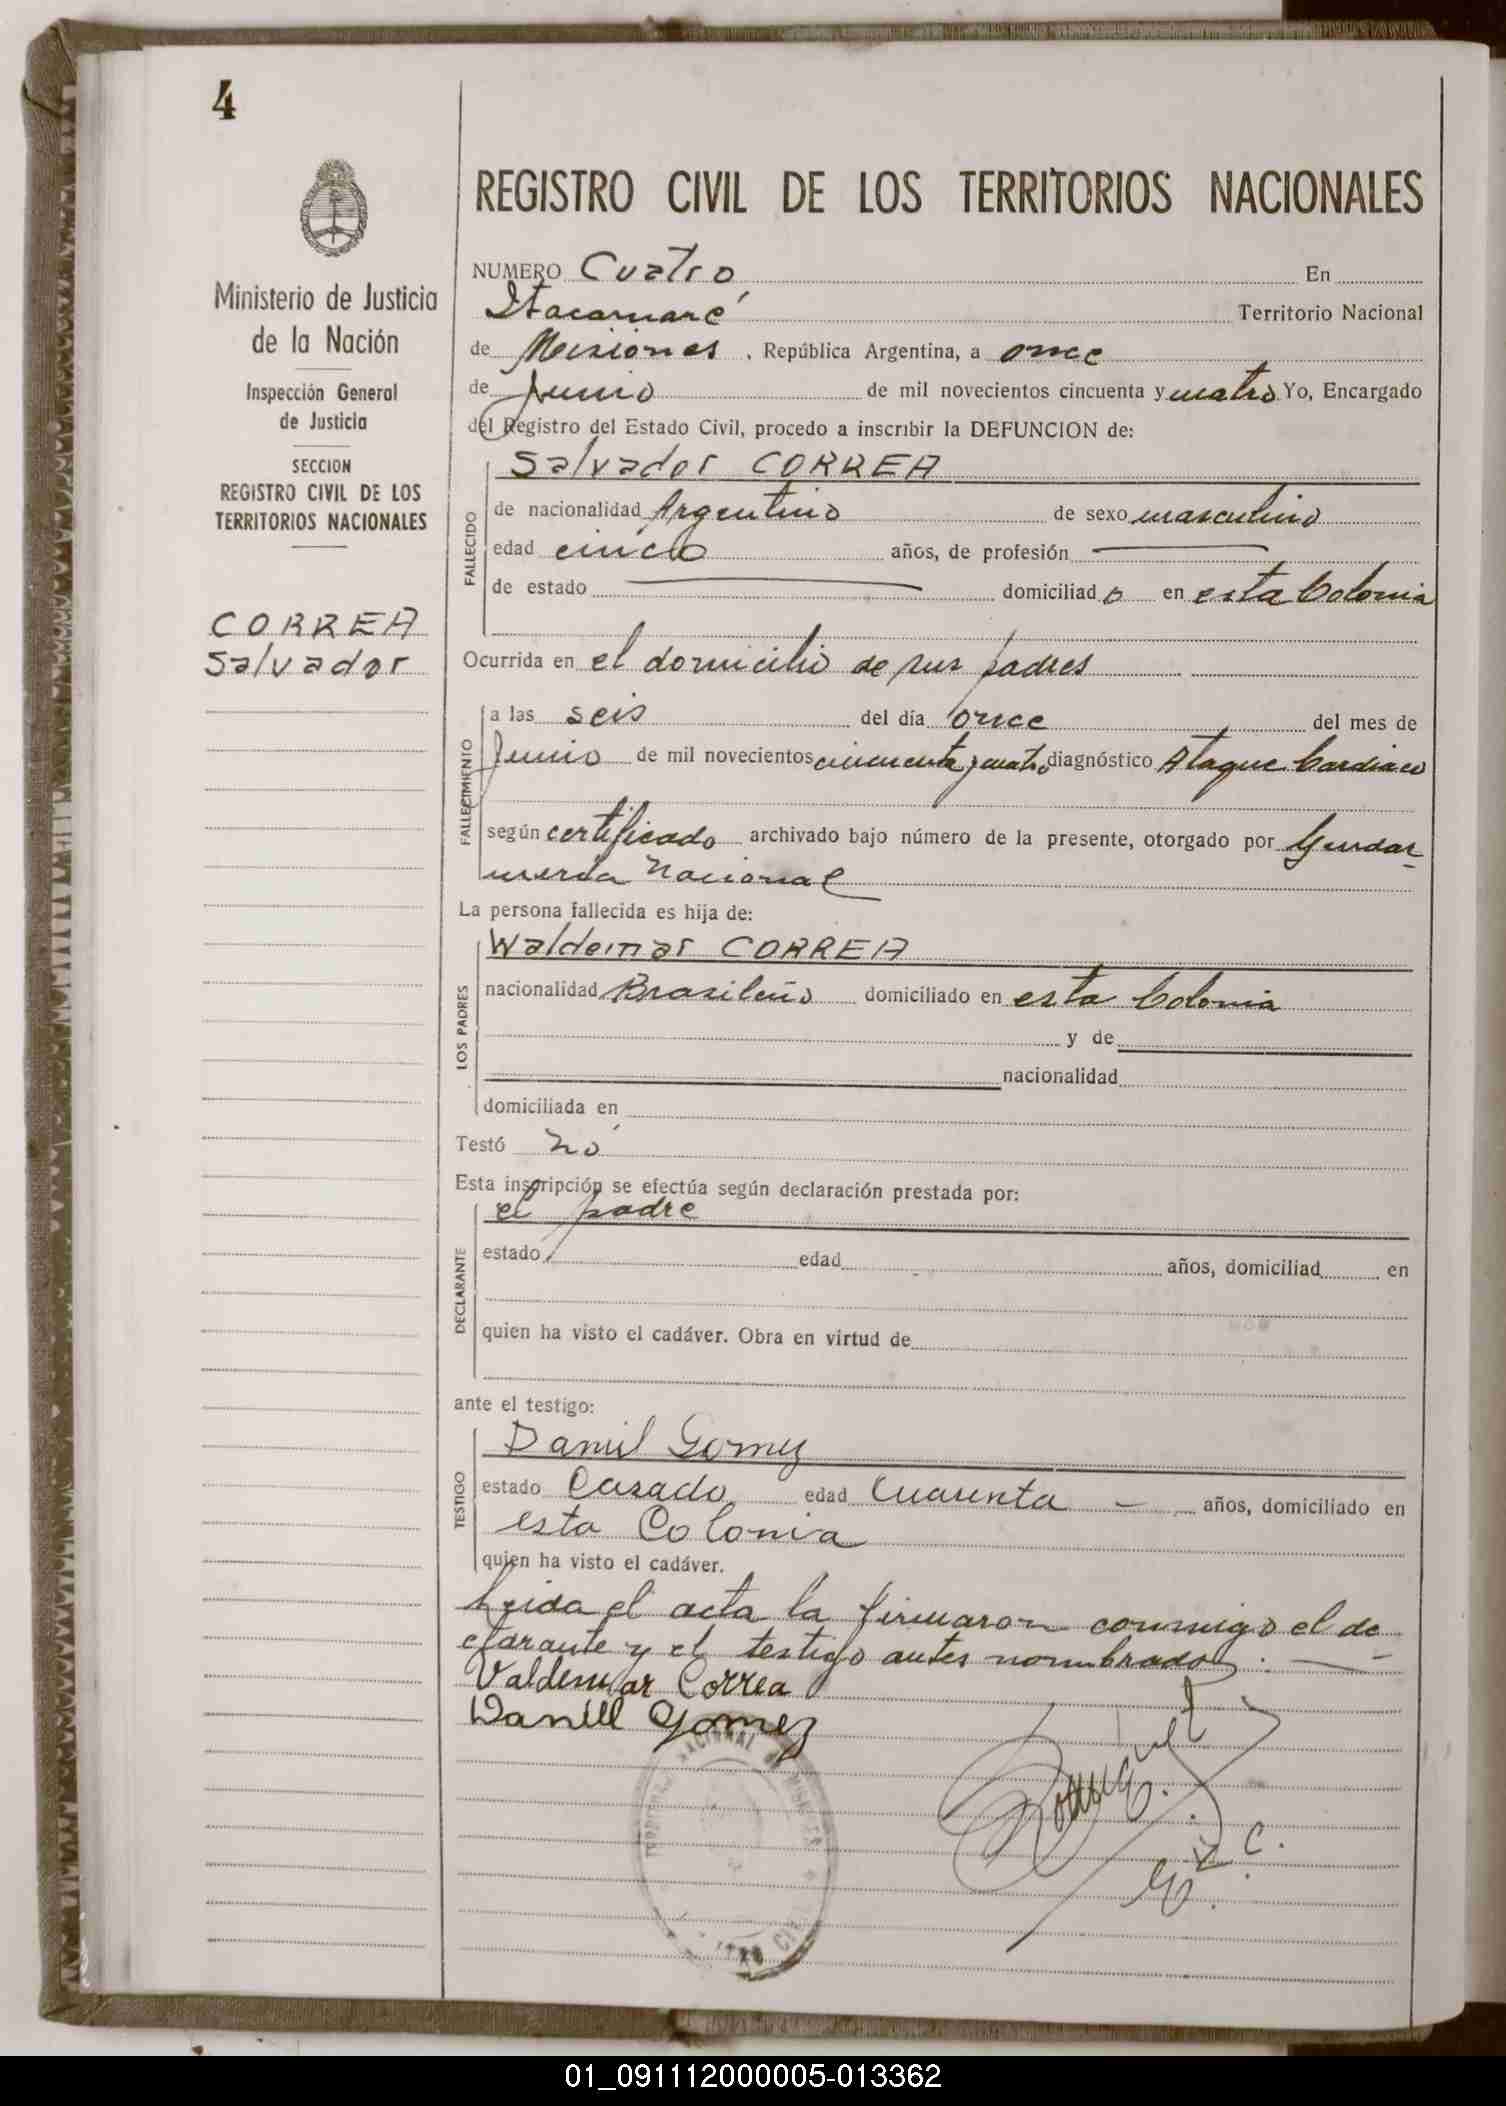 4
Ministerio de Justicia
de la Nación
Inspección General
de Justicia
SECCION
REGISTRO CIVIL DE LOS
TERRITORIOS NACIONALES
CORREA
Salvador
REGISTRO CIVIL DE LOS TERRITORIOS NACIONALES
NUMERO Cuatro En
Itacaruaré Territorio Nacional
de Misiones, República Argentina, a once
de Junio de mil novecientos cincuenta y cuatro Yo, Encargado
del Registro del Estado Civil, procedo a inscribir la DEFUNCION de:
Salvador CORREA
FALLECIDO
de nacionalidad Argentino de sexo masculino
edad cinco años, de profesión
de estado domiciliado en esta Colonia
Ocurrida en el domicilio de sus padres
FALLECIMIENTO
a las seis del día once del mes de
Junio de mil novecientos cincuenta y cuatro diagnóstico Ataque Cardiaco
según certificado archivado bajo número de la presente, otorgado por Gendar-
mería Nacional
La persona fallecida es hija de:
LOS PADRES
Waldemar CORREA
nacionalidad Brasileño domiciliado en esta Colonia
y de
nacionalidad
domiciliada en
Testó nó
Esta inscripción se efectúa según declaración prestada por:
DECLARANTE
el padre
estado edad años, domiciliad en
quien ha visto el cadáver. Obra en virtud de
ante el testigo:
TESTIGO
Daniel Gomez
estado Casado edad Cuarenta - años, domiciliado en
esta Colonia
quien ha visto el cadáver.
Leida el acta la firmaron conmigo el de-
clarante y el testigo antes nombrado. —
Valdemar Correa
Daniel Gomez
01_091112000005-013362